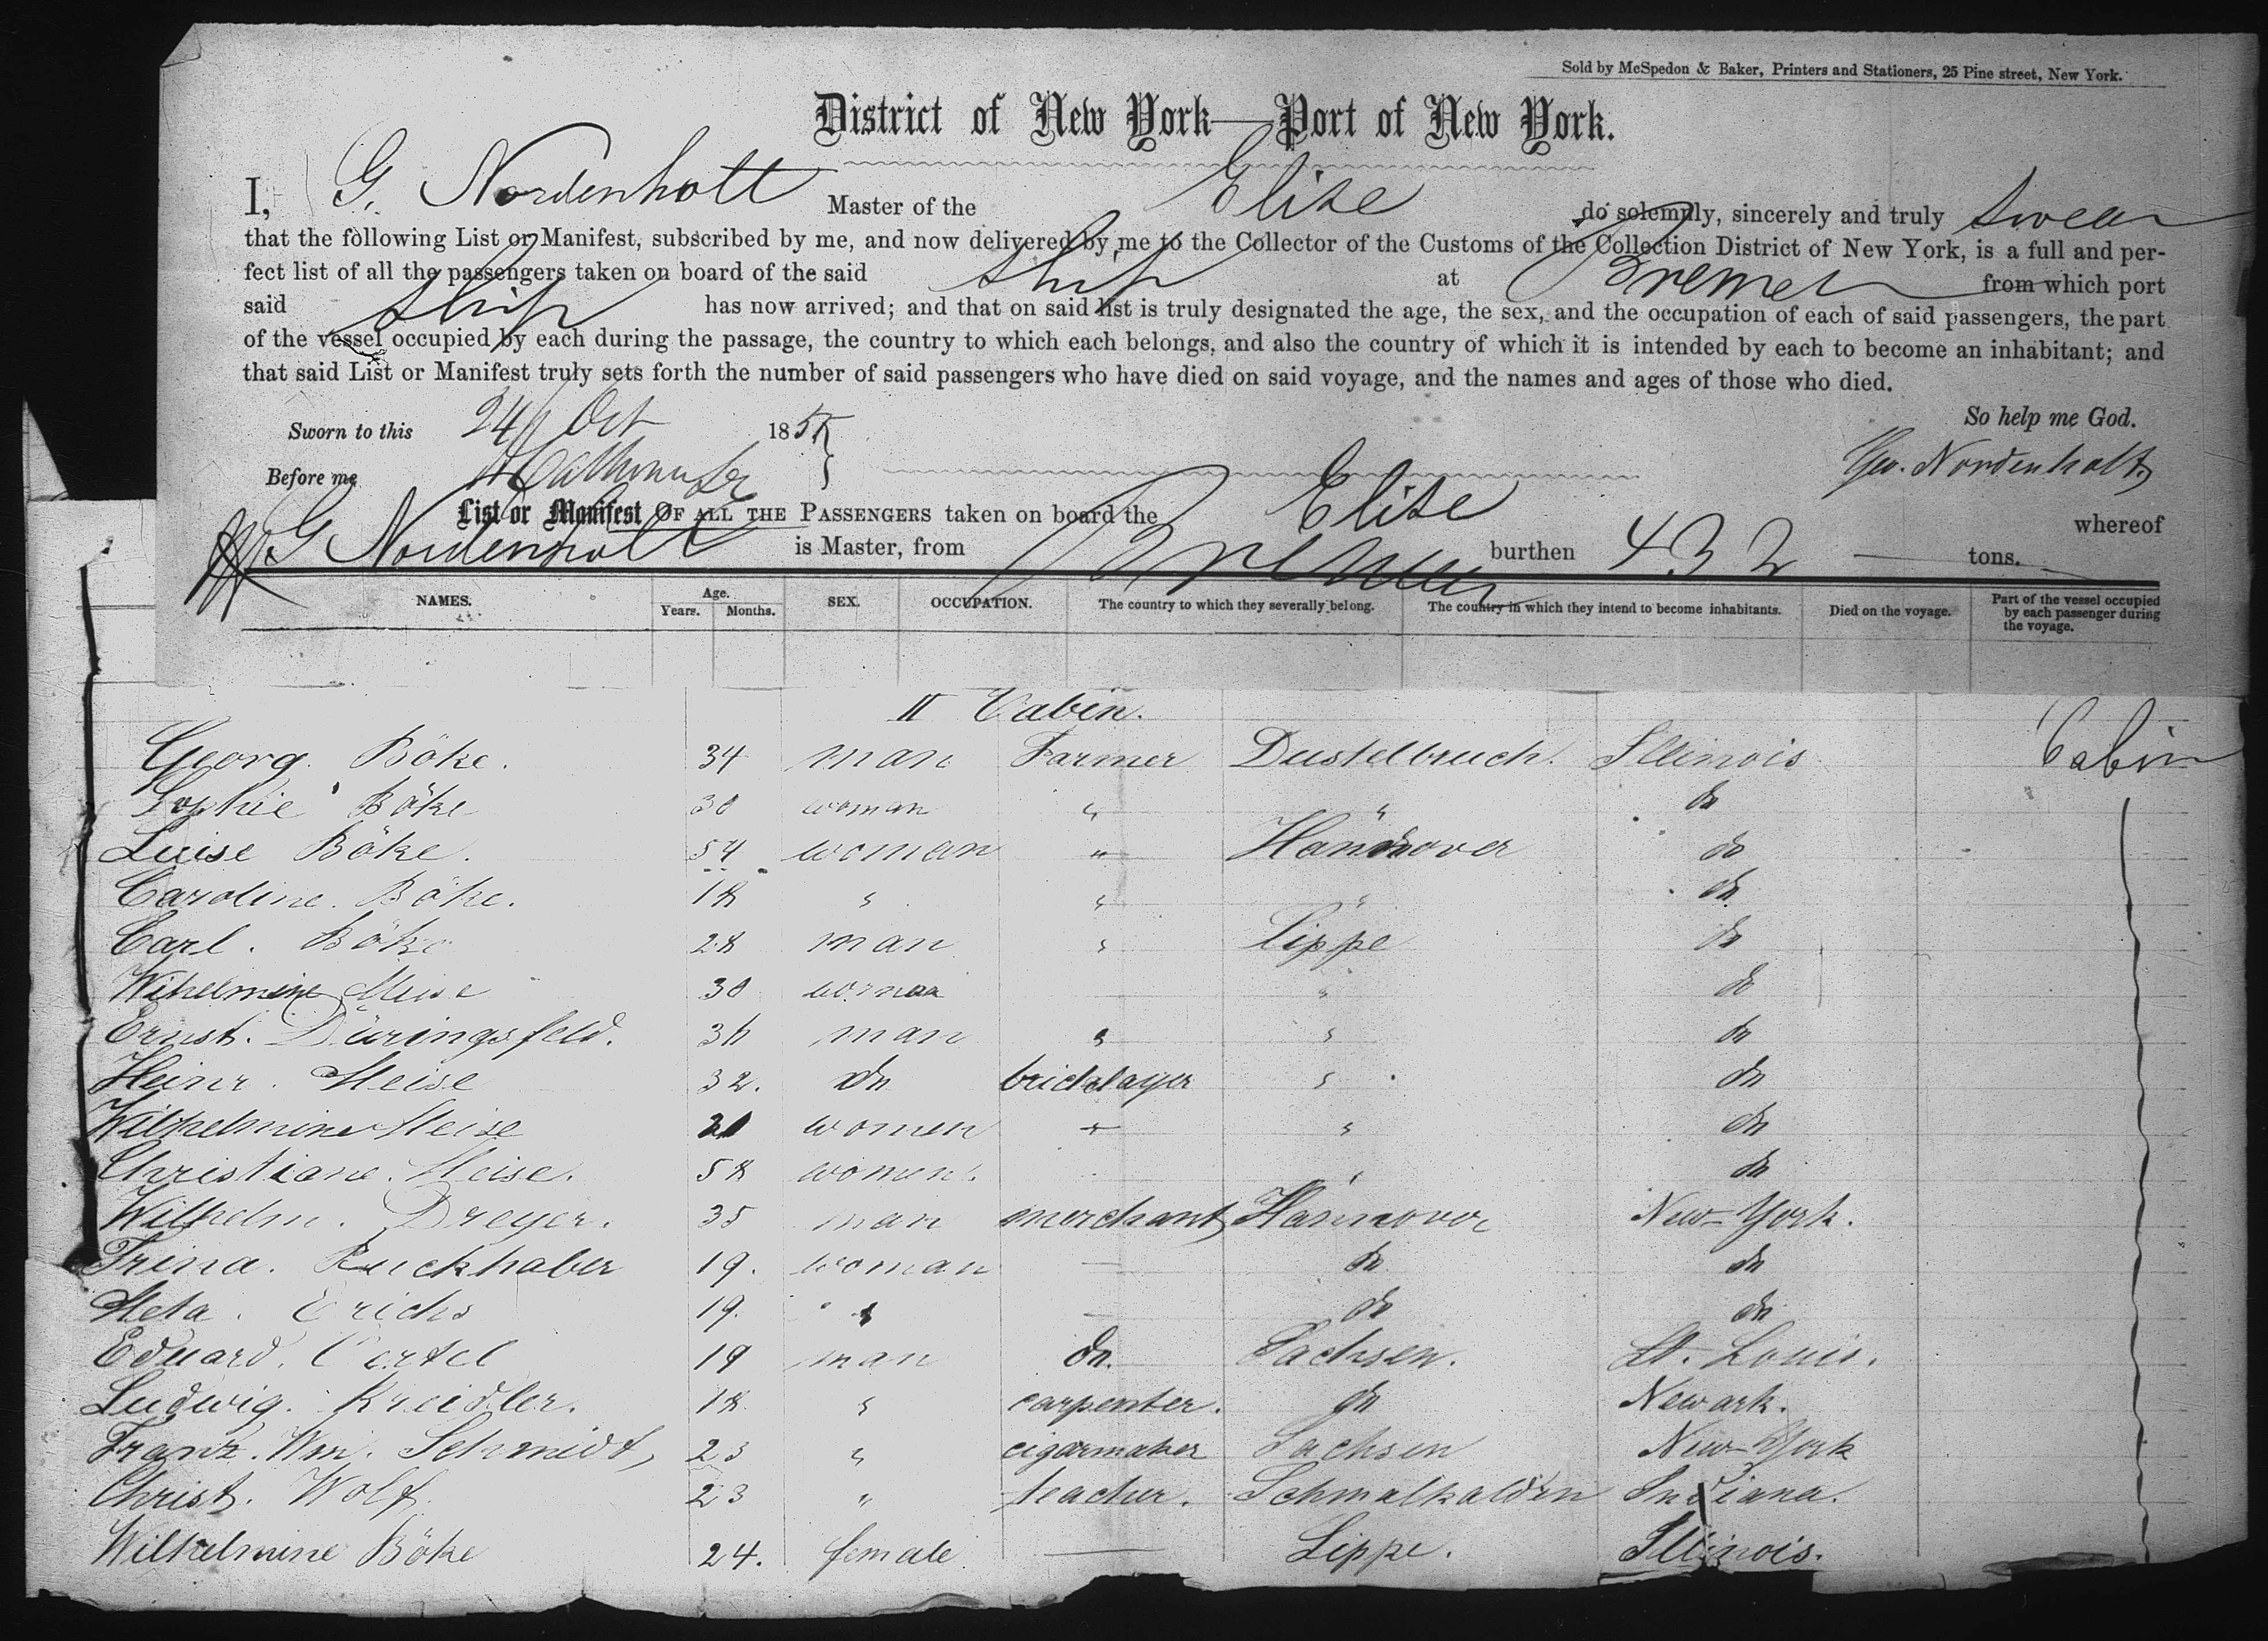 Sold by McSpedon & Baker, Printers and Stationers, 25 Pine street, New York.
District of New York—Port of New York.
I, G. Nordenholt Master of the Elise do solemnly, sincerely and truly swear
that the following List or Manifest, subscribed by me, and now delivered by me to the Collector of the Customs of the Collection District of New York, is a full and per-
fect list of all the passengers taken on board of the said ship at Bremen from which port
said ship has now arrived; and that on said list is truly designated the age, the sex, and the occupation of each of said passengers, the part
of the vessel occupied by each during the passage, the country to which each belongs, and also the country of which it is intended by each to become an inhabitant; and
that said List or Manifest truly sets forth the number of said passengers who have died on said voyage, and the names and ages of those who died.
So help me God.
Sworn to this 24 Oct 1855
Geo. Nordenholt
Before me
List or Manifest OF ALL THE PASSENGERS taken on board the Elise whereof
G Nordenholt is Master, from Bremen burthen 432 tons.
NAMES. Age. Years. Months. SEX. OCCUPATION. The country to which they severally belong. The country in which they intend to become inhabitants. Died on the voyage. Part of the vessel occupied by each passenger during the voyage.
II Cabin.
Georg Böke. 34 man Farmer Illinois Cabin
Sophie Böke 30 woman " " do
Luise Böke. 54 woman " Hannover do
Caroline. Böke. 18 " " " do
Carl. Böke 28 man " Lippe do
Wihelmine Meise 30 woman " do
Ernst. Düringsfeld. 36 man " " do
Heinr. Meise 32. do bricklayer " do
Wilhelmine Meise women " do
Christiane. Meise. 58 women. " do
Wilhelm. Dreyer. 35 man merchant Hannover New-York.
Trina. Ruckhaber 19. woman — do do
Meta. Erichs 19. " — do do
Eduard. Oertel 19 man do. Sachsen. St. Louis.
Ludwig. Kreidler. 18. " carpenter. do Newark.
Franz. Wm. Schmidt, 23 " cigarmaker Sachsen New-York
Christ. Wolf. 23 " teacher. Schmalkalden Indiana.
Wilhelmine Böke 24. female — Lippe. Illinois.